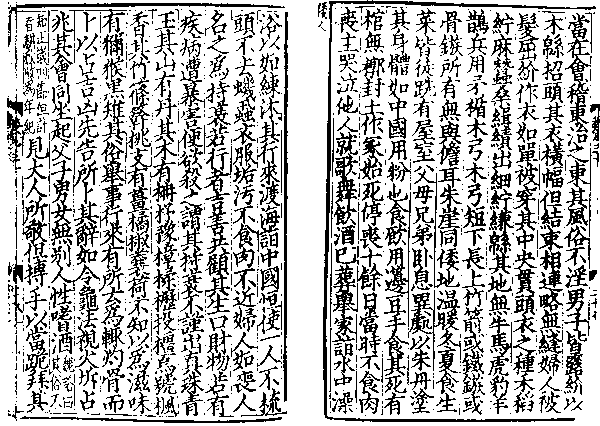 當在會稽東冶之東其風俗不淫男子皆露紒以
木緜招頭其衣橫幅但結束相連略無縫婦人被
髮屈紒作衣如單被穿其中央貫頭衣之種禾稻
紵麻蠶桑緝績出細紵縑緜其地無牛馬虎豹羊
鵲兵用矛楯木弓木弓短下長上竹箭或鐵鏃或
骨鏃所有無與儋耳朱崖同倭地溫暖冬夏食生
菜皆徒跣有屋室父母兄弟卧息異處以朱丹塗
其身體如中國用粉也食飲用籩豆手食其死有
棺無槨封土作冢始死停喪十餘日當時不食肉
喪主哭泣他人就歌舞飲酒已葬舉家詣水中澡
浴以如練沐其行來渡海詣中國恒使一人不梳
頭不去蟣蝨衣服垢污不食肉不近婦人如喪人
名之爲持衰若行者吉善共顧其生口財物若有
疾病遭暴害便欲殺之謂其持衰不謹出真珠青
玉其山有丹其木有柟杼豫樟楺櫪投橿烏號楓
香其竹篠簳桃支有薑橘椒蘘荷不知以爲滋味
有獮猴黑雉其俗舉事行來有所云爲輒灼骨而
卜以占吉凶先告所卜其辭如令龜法視火坼占
兆其會同坐起父子男女無別人性嗜酒魏略曰其俗不
知正歲四節但計春耕秋收爲年紀見大人所敬但搏手以當跪拜其